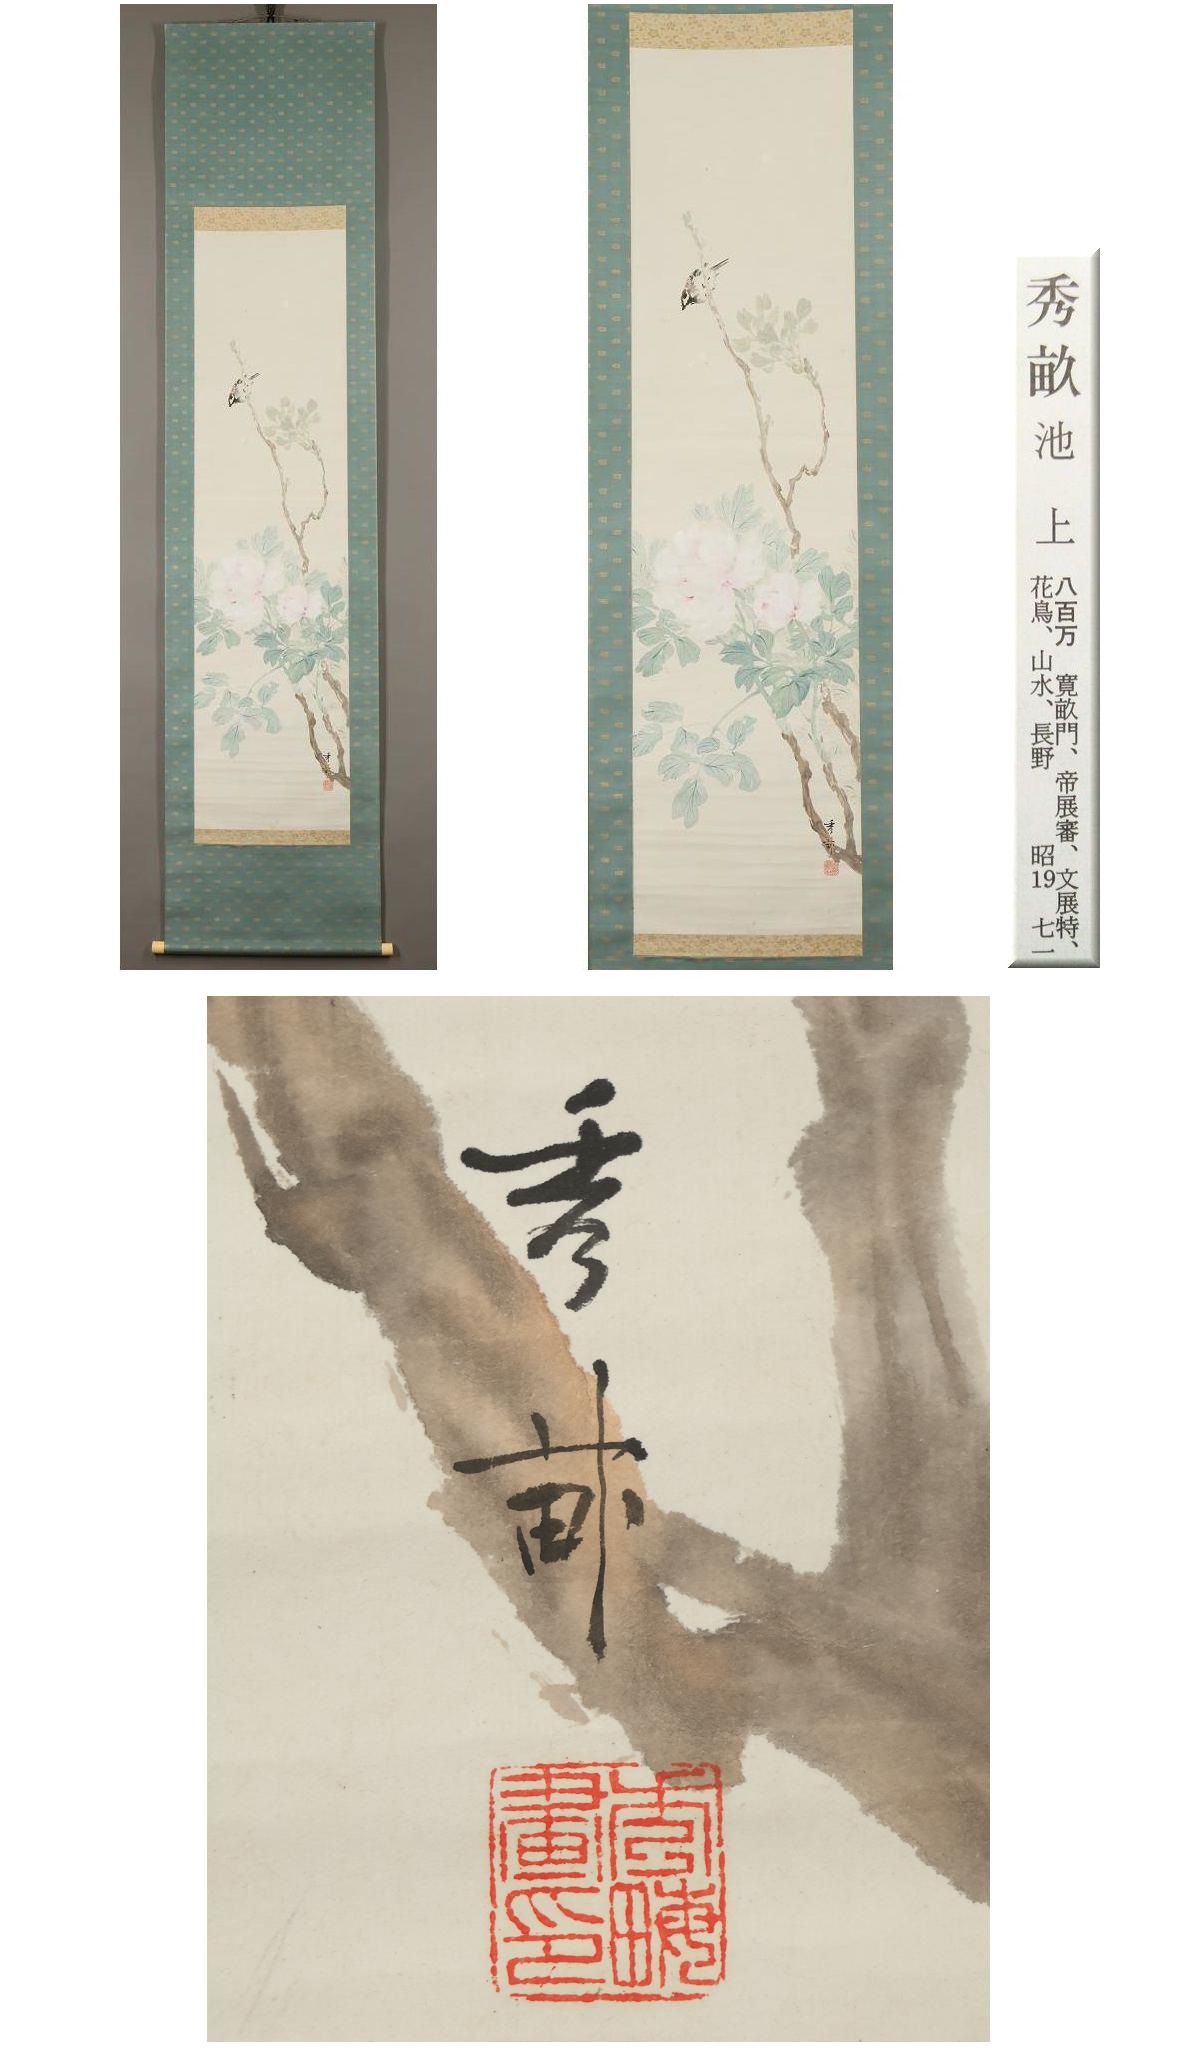 秀畝 池上
八百万 寛畝門、帝展審、文展特、
花鳥、山水、長野 昭19 七一
秀畝
秀畝
畫印